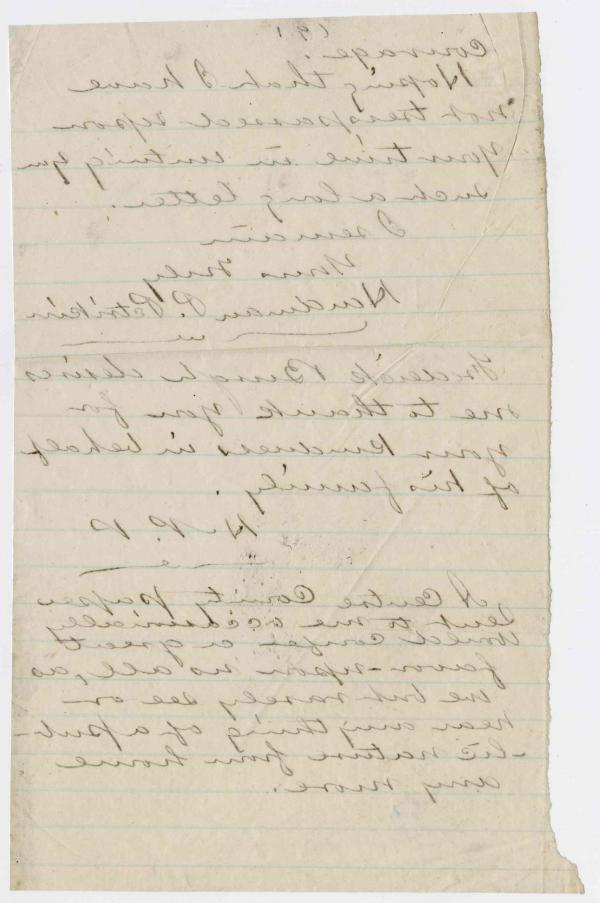 (9)
Courage.
Hoping that I have
not tresspassed upon
your time in writing you
such a long letter.
I remain
Yours Truly
Hardman P. Petrikin
Frederick Bingle desires
me to thank you for
your kindness in behalf
of his family.
H. P. P
A Centre County paper
sent to me occasionally
would confer a great
favor upon us all, as
we but rarely see or
hear anything of a pub-
-lic nature from home
any more.